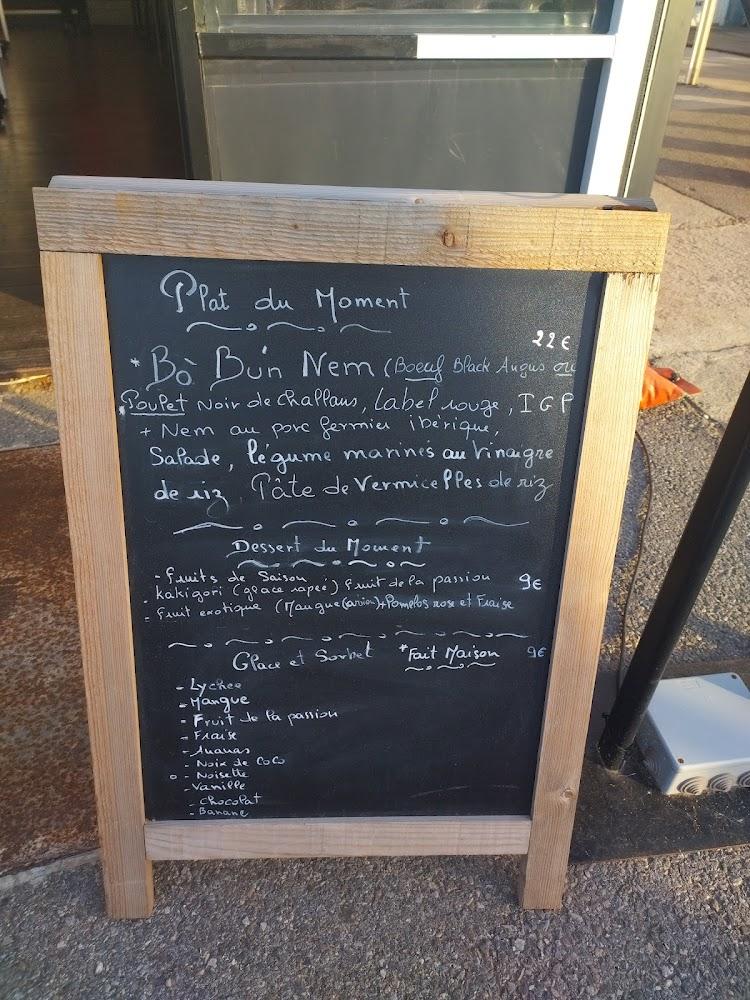 Plat du Moment
22 €
* Bò Bún Nem (Boeuf Black Angus ou
Poulet Noir de Challans, Label rouge, IGP
+ Nem au porc fermier ibérique,
Salade, légume marinés au Vinaigre
de riz, Pâte de Vermicelles de riz
Dessert du Moment
- Fruits de Saison
kakigori (glace rapée) fruit de la passion 9€
- Fruit exotique (Mangue (avion) + Pomelos rose et Fraise
Glace et Sorbet *Fait Maison 9€
- Lychee
- Mangue
- Fruit de la passion
- Fraise
- Ananas
- Noix de Coco
- Noisette
- Vanille
- Chocolat
- Banane